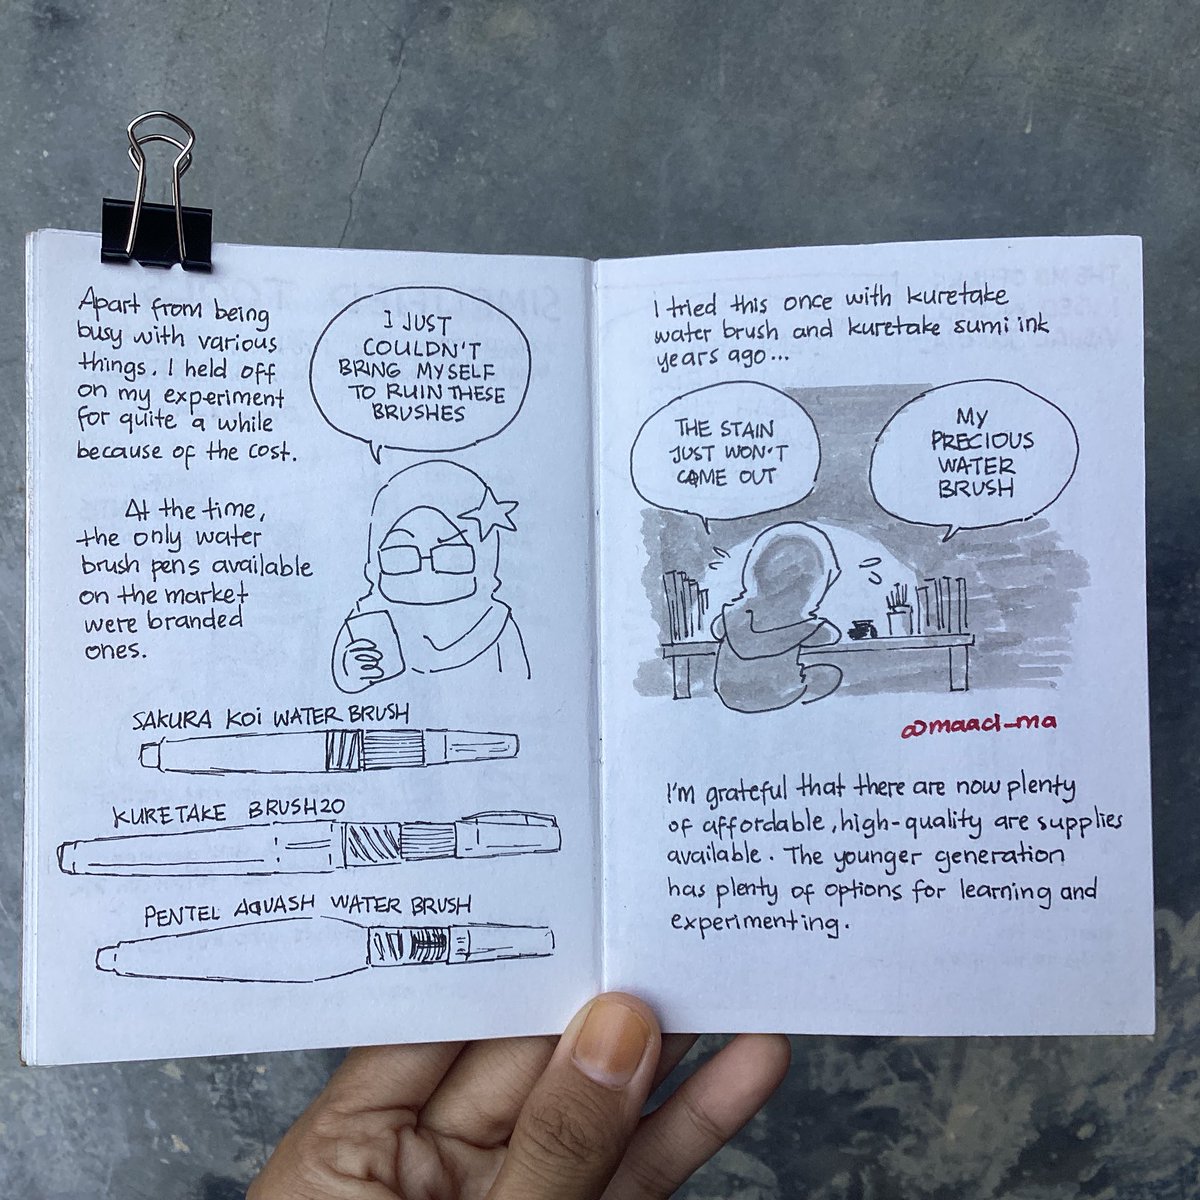 Apart from being
busy with various
things. I held off
on my experiment
for quite a while
because of the cost.
At the time,
the only water
brush pens available
on the market
were branded
ones.
I JUST
COULDN'T
BRING MYSELF
TO RUIN THESE
BRUSHES
SAKURA KOI WATER BRUSH
KURETAKE BRUSH20
PENTEL AQUASH WATER BRUSH
I tried this once with kuretake
water brush and kuretake sumi ink
years ago...
THE STAIN
JUST WON'T
CAME OUT
MY
PRECIOUS
WATER
BRUSH
@maad_ma
I'm grateful that there are now plenty
of affordable, high-quality are supplies
available. The younger generation
has plenty of options for learning and
experimenting.